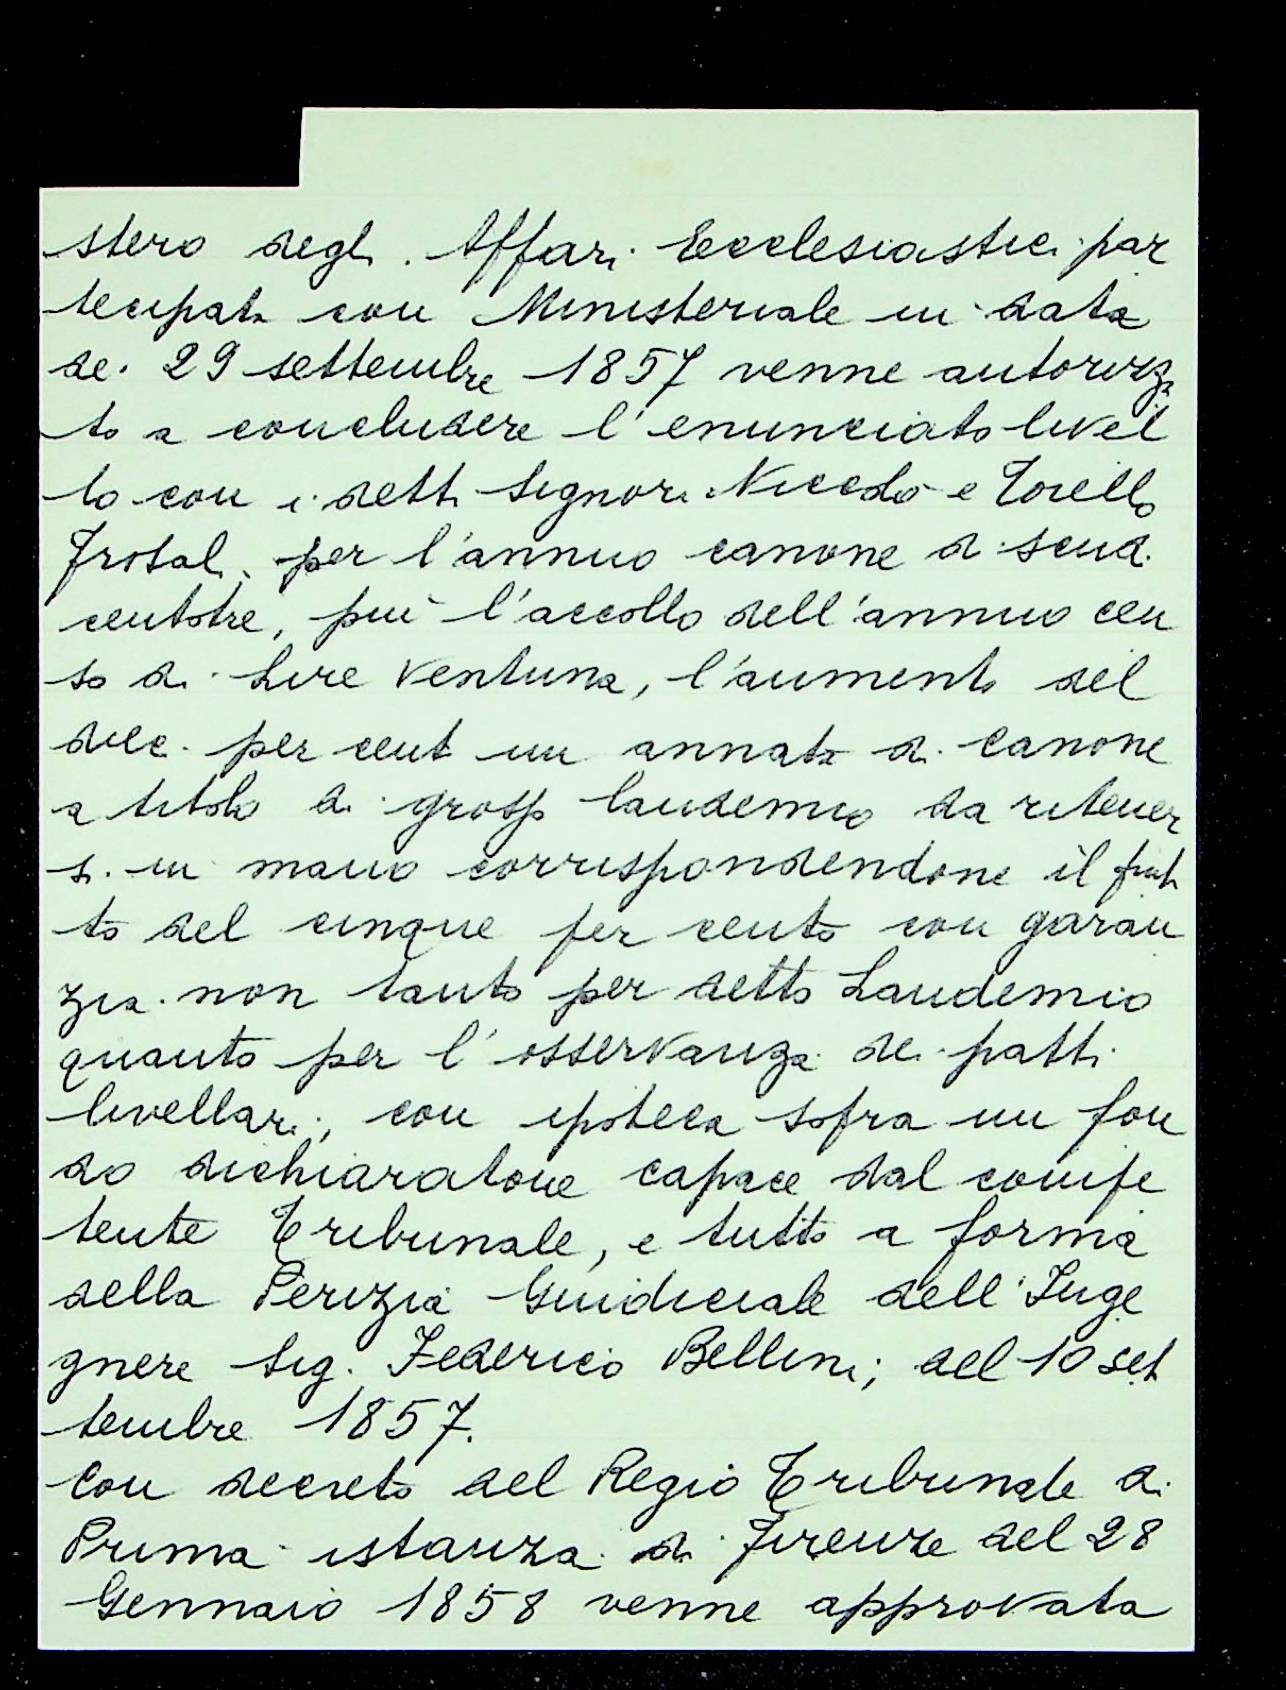 stero degli Affari Ecclesiastici par
tecipata con Ministeriale in data
de' 29 settembre 1857 venne autorizza
to a concludere l'enunciato livel
lo con i detti Signori Niccolò e Torello
per l'annuo canone di scudi
centotre, più l'accollo dell'annuo cen
so di Lire Ventuna, l'aumento del
dieci per cento un annata di canone
a titolo di grosso laudemio da ritener
si in mano corrispondendone il frut
to del cinque per cento con garan
zia non tanto per detto Laudemio
quanto per l'osservanza dei patti
livellari, con ipoteca sopra un fon
do dichiaratone capace dal compe
tente Tribunale, e tutto a forma
della Perizia Giudiciale dell'Inge
gnere Sig. Federico Bellini; del 10 set
tembre 1857.
Con decreto del Regio Tribunale di
Prima istanza di Firenze del 28
Gennaio 1858 venne approvata